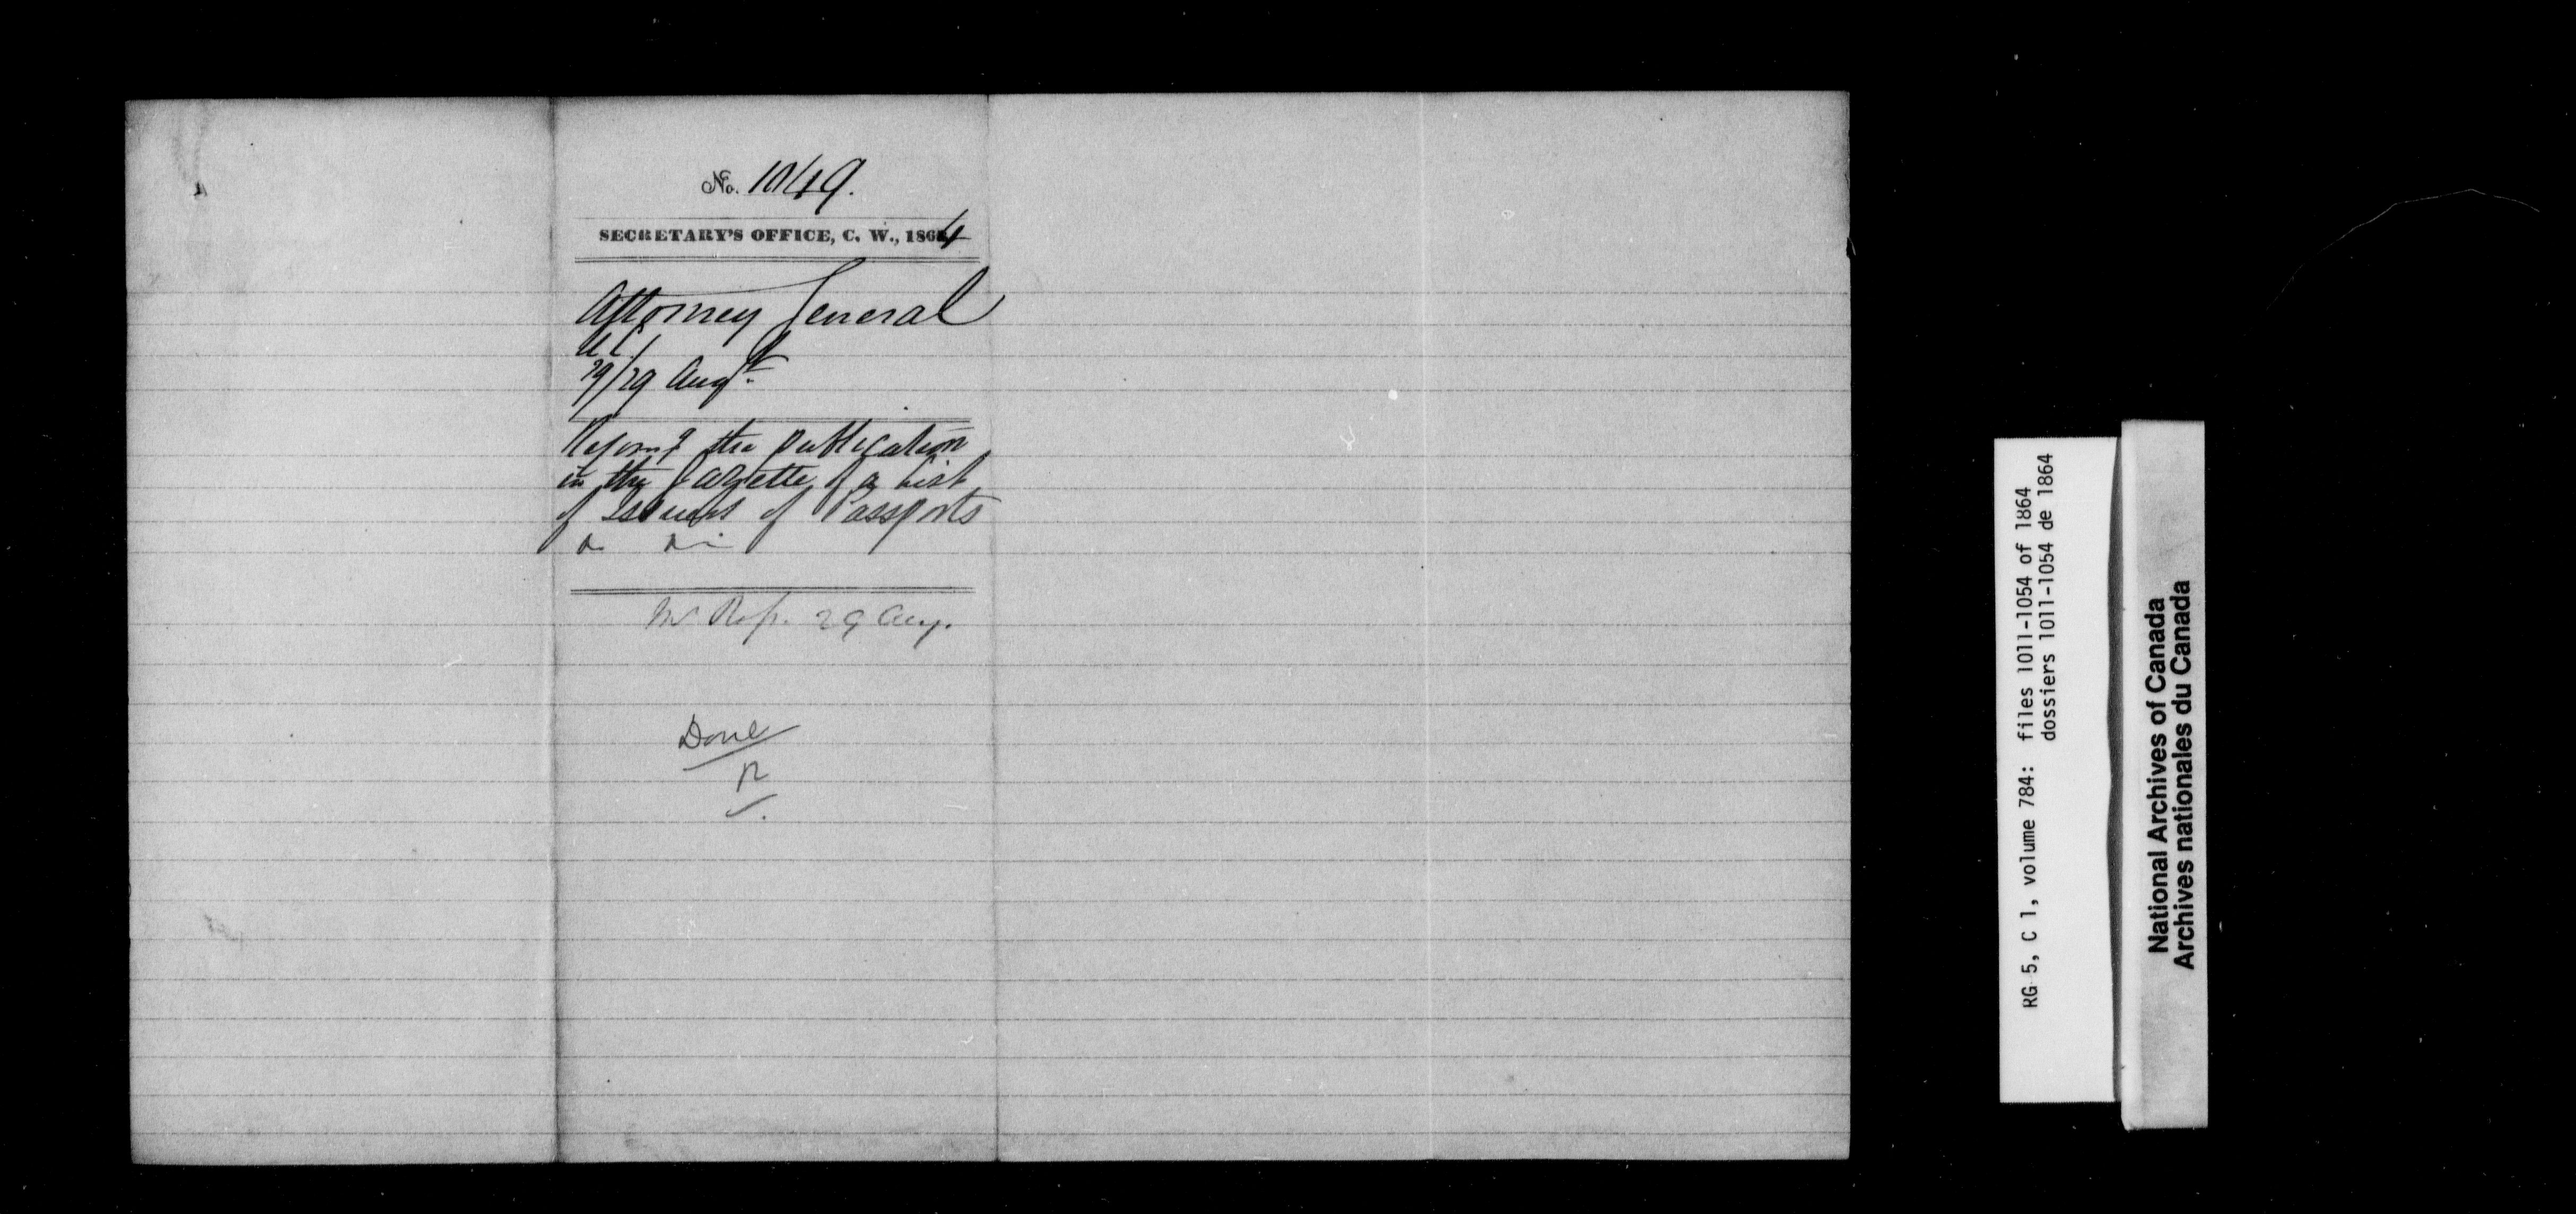 No. 1049.
SECRETARY'S OFFICE, C. W., 1864
Attorney General
U.C.
29/29 Augt.
the publication
in the Gazette of a List
of Issuers of Passports
29 Aug.
Done
R
RG 5, C 1, volume 784: files 1011-1054 of 1864
dossiers 1011-1054 de 1864
National Archives of Canada
Archives nationales du Canada